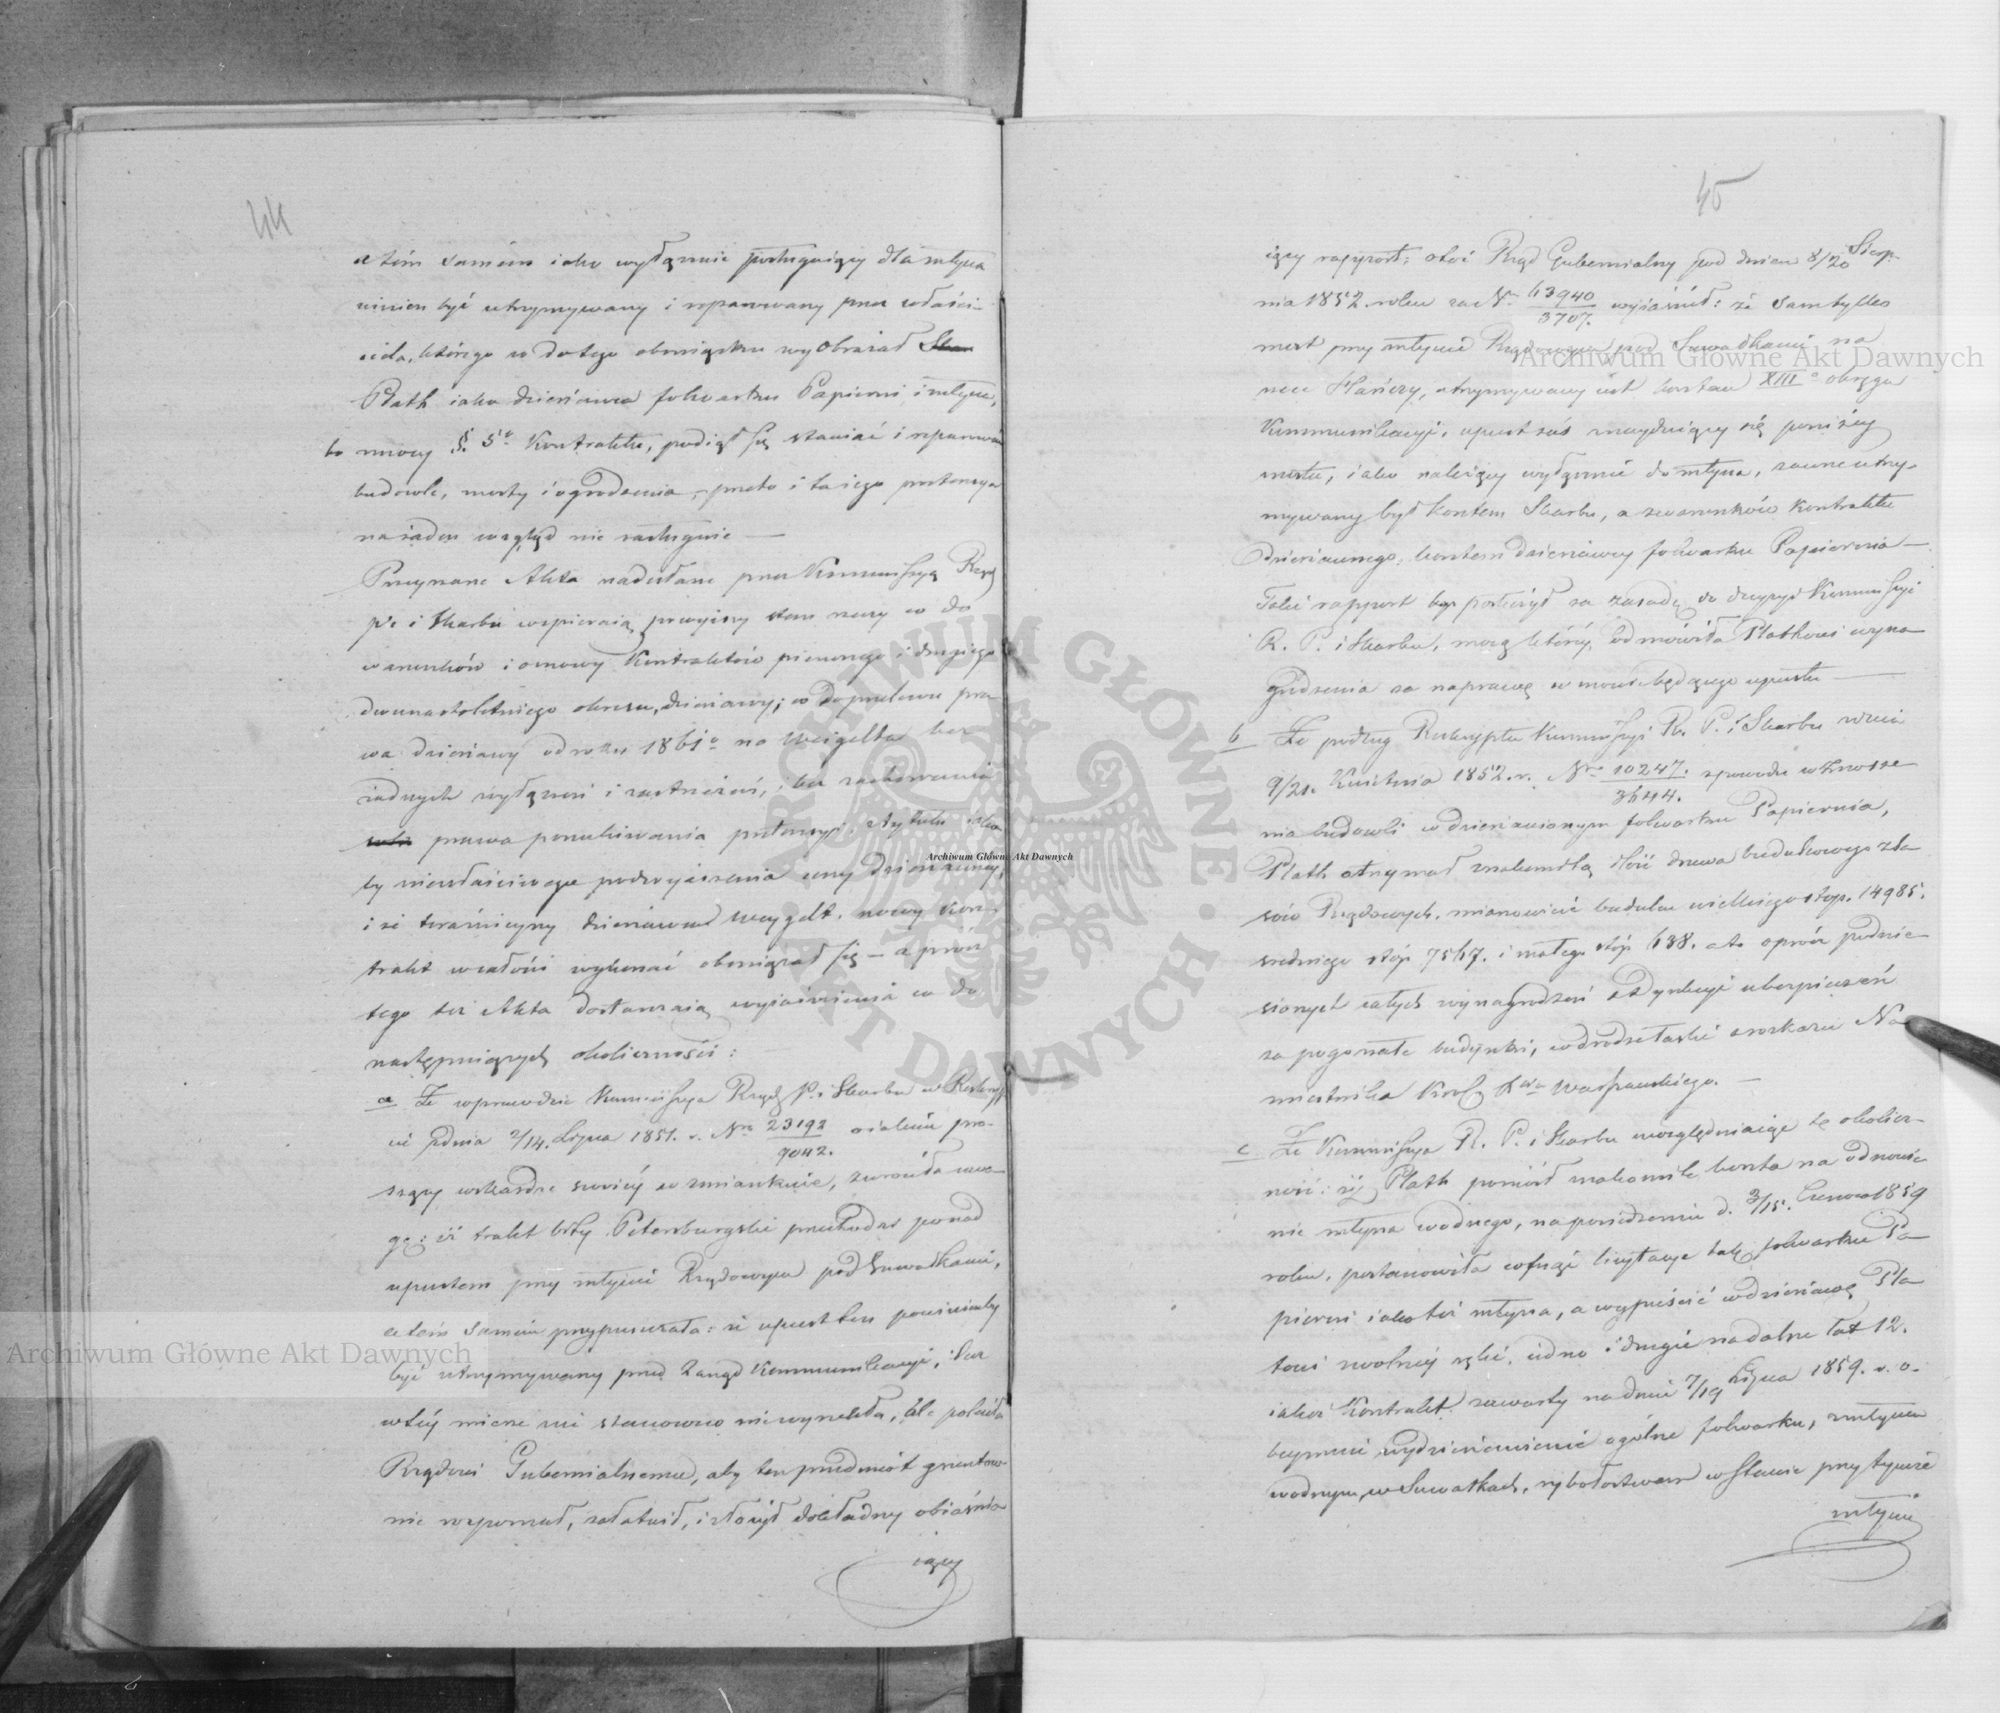 44
a tém samém iako wyłącznie posługuiący dla młyna
winien być utrzymywany i reparowany przez właści-
ciela, którego co do tego obowiązku wyobrażał
Plath iako dzierżawca folwarku Papierni i młyna,
bo z mocy §. 5go Kontraktu, podiął się stawiać i reparować
budowle, mosty i ogrodzenia, – przeto i ta iego pretensya
na żaden wzgląd nie zasługuie —
Przeyrzane Akta nadesłane przez Kommissyą Rząd
P. i Skarbu wspieraią powyższy stan rzeczy co do
warunków i osnowy Kontraktów pierwszego i drugiego
dwunastoletniego okresu, dzierżawy; co do przelewu pra-
wa dzierżawy od roku 1861o na Weigelta bez
żadnych wyłączeń i zastrzeżeń, i bez zachowania
prawa poszukiwania pretensyi z tytułu iako-
by niewłaściwego podwyższenia ceny dzierżawney,
i że teraźnieyszy dzierżawca Weygelt, nowy Kon-
trakt w całości wykonać obowiązał się – a prócz
tego też Akta dostarczaią wyiaśnienia co do
następuiących okoliczności:
a Że wprawdzie Kommissya Rząd P. i Skarbu w Reskryp-
cie z dnia 2/14. Lipca 1851. r. No 23192
9042.
szczy wskardze swoiéy zwróciła uwa-
gę: iż trakt bity Petersburgski przechodzi ponad
upustem przy młynie Rządowym pod Suwałkami,
a tém samém przypuszczała: że upust ten powinienby
być utrzymywany przez Zarząd Kommunikacyi,
w téy mierze nic stanowczo niewyrzekła, ale poleciła
Rządowi Gubernialnemu, aby ten przedmiot gruntow-
nie rozpoznał, załatwił, i złożył dokładny obiaśnia-
iący
45
iący rapport; otóż Rząd Gubernialny pod dniem 8/20 Sierp-
nia 1852. roku za Nr 63940
3707. wyiaśnił: że sam tylko
most przy młynie Rządowym pod Suwałkami na
rzece Hańczy, utrzymywany iest kosztem XIIIo okręgu
Kommunikacyi, upust zaś znayduiący się poniżéy
mostu, iako należący wyłącznie do młyna, zawsze utrzy-
mywany był kosztem Skarbu, a z warunków Kontraktu
dzierżawnego, kosztem dzierżawcy folwarku Papiernia —
Takiż rapport posłużył za zasadę do decyzyi Kommissyi
R. P. i Skarbu, mocą któréy, odmówiła Plathowi wyna-
grodzenia za naprawę w mowie będącego upustu —
b Że podług Reskryptu Kommissyi R. P. i Skarbu z dnia
9/21. Kwietnia 1852. r. Nro 10247.
3644. z powodu wznosze-
nia budowli w dzierżawionym folwarku Papiernia,
Plath otrzymał znakomitą ilość drzewa budulcowego z la-
sów Rządowych, mianowicie budulcu wielkiego stóp. 14985.
średniego stóp 7567. i małego stóp 638. a to oprócz podnie-
sionych całych wynagrodzeń z Dyrekcyi ubezpieczeń
za pogorzałe budynki, w drodze łaski z rozkazu Na-
miestnika Król. Kgo Warszawskiego. —
c Że Kommissya R. P. i Skarbu uwzględniaiąc tę okolicz-
ność: iż Plath poniósł znakomite koszta na odnowie-
nie młyna wodnego, na posiedzeniu d. 3/15. Czerwca 1859
roku, postanowiła cofnąć licytacyę tak folwarku Pa-
pierni iako też młyna, a wypuścić w dzierżawę Pla-
towi z wolnéy ręki, iedno i drugie na dalsze lat 12.
iakoż Kontrakt zawarty na dniu 7/19 Lipca 1859. r. o-
beymuie wydzierżawienie ogólne folwarku, z młynem
wodnym, w Suwałkach, rybołostwem w stawie przy tymże
młynie
Archiwum Główne Akt Dawnych
Archiwum Główne Akt Dawnych
Archiwum Główne Akt Dawnych
ARCHIWUM GŁÓWNE · AKT DAWNYCH ·